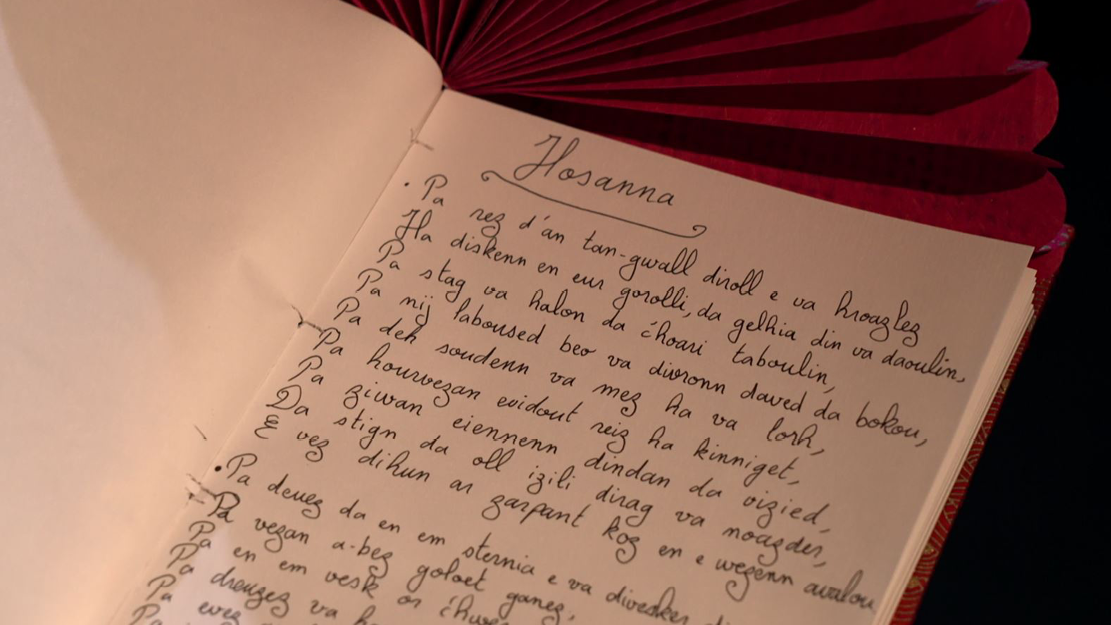 Hosanna
• Pa rez d'an tan-gwall diroll e va kroazlez
Ha diskenn en eur gorolli, da gelhia din va daoulin,
Pa stag va halon da c'hoari taboulin,
Pa nij laboused beo va divronn daved da bokou,
Pa deh soudenn va mez ha va lorh,
Pa hourvezan evidout reiz ha kinniget,
Pa ziwan eienenn dindan da vizied,
Da stign da oll izili dirag va noazder,
E vez dihun ar zarpant koz en e wezenn avalou
• Pa deuez da en em sternia e va divesker
Pa vezan a-bez goloet ganez,
Pa en em vesk or
Pa dreuzez va
Pa